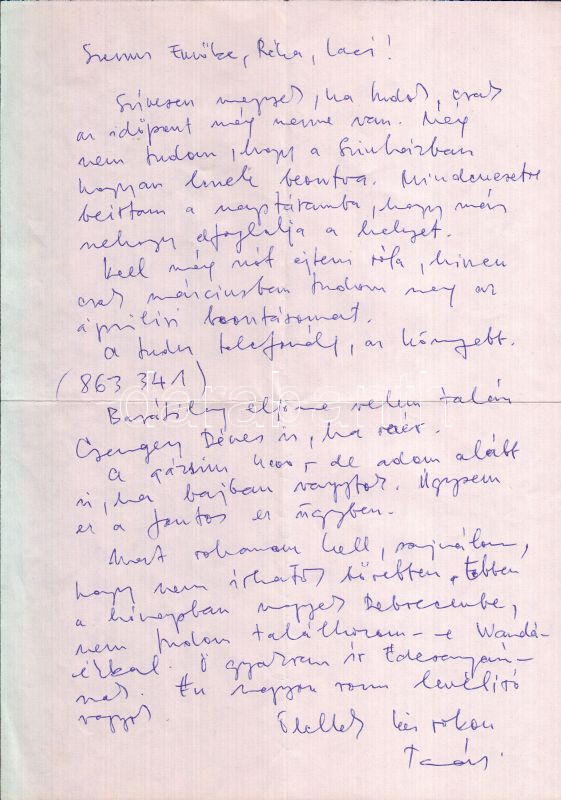 Szervusz Emőke, Réka, Laci!
Szívesen megyek, ha tudok, csak
az időpont még messze van. Még
nem tudom, hogy a Színházban
hogyan leszek beosztva. Mindenesetre
beírtam a naptáramba, hogy más
nehogy elfoglalja a helyet.
Kell még rót ejteni róla, hiszen
csak márciusban tudom meg az
áprilisi beosztásomat.
A tudsz telefonálj, az könyebb.
(863 341)
Barátilag eljönne velem talán
Csengey Dénes is, ha ráér.
A gázsim de adom alább
is, ha bajban vagytok. Úgysem
ez a fontos ez ügyben.
Most rohanom kell, sajnálom,
hogy nem írhatok bővebben. Ebben
a hónapban megyek Debrecenbe,
nem tudom találkozom-e Wandá-
ékkal. Ő gyakran ír Édesanyám-
nak. Én nagyon rossz levélíró
vagyok.
Ölellek kis rokon
Tamás.
darabanth